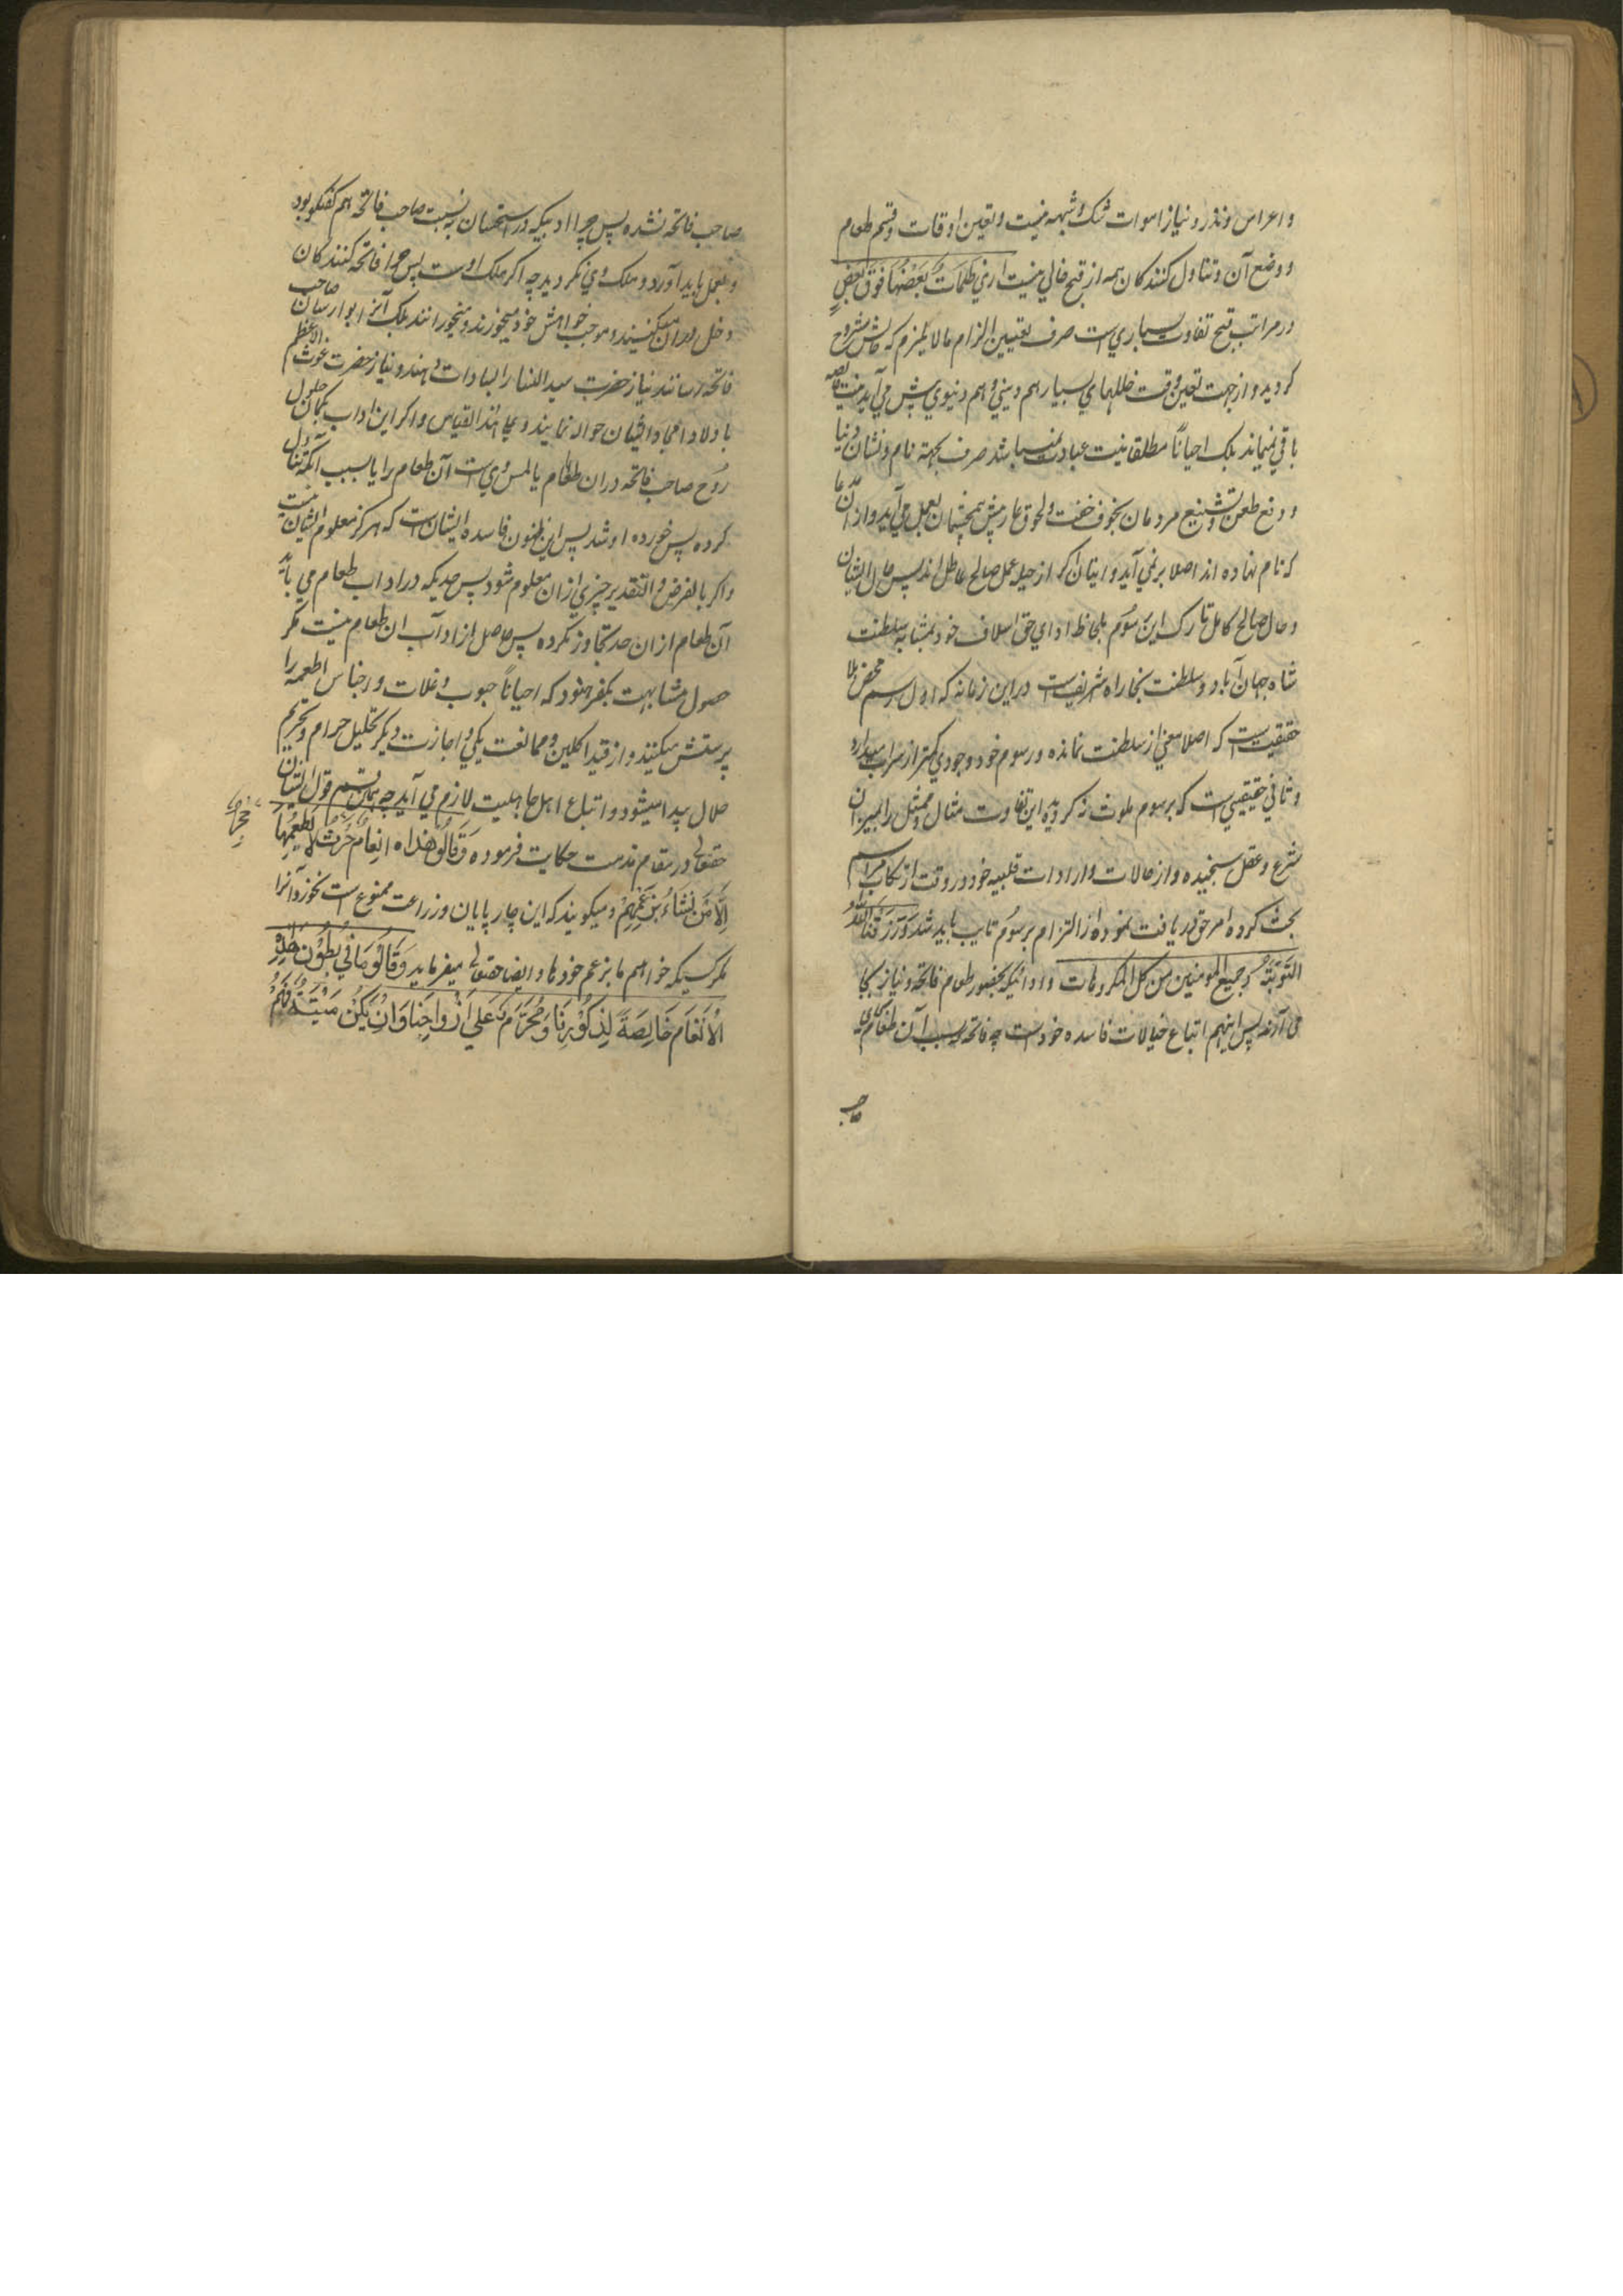 و اعراس و نذر و نیاز اموات شک و شبهه نیست و تعین اوقات و قسم طعام
و وضع آن و تناول کنندکان همه از قبح خالی نیست اری ظُلُمَاتٌ بَعْضُهَا فَوْقَ بَعْضٍ
در مراتب قبح تفاوت بسیاری ست صرف تعیین الزام ما لا یلزم که حالش مشروح
کردید و از جهت تعین وقت خللهای بسیار هم دینی و هم دنیوی پیش می آید نیت خالصه
باقی نمیماند بلک احیاناً مطلقا نیت عبادت نمیباشد صرف بجهة نام و نشان دنیا
و دفع طعن و تشنیع مردمان بخوف خفت و لحوق عار پیش همچشمان بعمل می آید و از آن مدعا
که نام نهاده اند اصلا بر نمی آید و اینان اکر از حیله عمل صالح عاطل اند پس حال ایشان
و حال صالح کامل تارک این رسوم بلحاظ ادای حق اسلاف خود بمثابه سلطنت
شاه جهان آباد و سلطنت بخارا شریف ست در این زمانه که اول رسم محض بلا
حقیقت ست که اصلا معنی از سلطنت نمانده و رسوم خود وجودی کمتر از سراب میدارد
و ثانی حقیقی ست که برسوم ملوث نکردیده این تفاوت مثال و ممثل را بمیزان
شرع و عقل سنجیده و از حالات و ارادات قلبیه خود در وقت ارتکاب مراسم
بحث کرده امر حق دریافت نموده از التزام بر رسوم تایب باید شد وَ رَزَقَنَا اللّٰهُ
التَّوبَةَ وجمیع المومنین من کل المکروهات و ادابیکه بحضور طعام فاتحه و نیاز بجا
می آرند پس اینهم اتباع خیالات فاسده خود ست چه فاتحه بسبب آن طعام
صاحب
صاحب فاتحه نشده پس چرا ادبیکه در استحسان به نسبت صاحب فاتحه هم کفتکو بود
و بعمل باید آورد و ملک وی نکردید چه اکر ملک اوست پس چرا فاتحه کنندکان
دخل دران میکنند و موجب خواهش خود میخورند و میخورانند بلک آنرا بوارثان صاحب
فاتحه رسانند نیاز حضرت سید النسا را بسادات دهند و نیاز حضرت غوث الاعظم
باولاد امجاد ایشان حواله نمایند و علی هذا القیاس و اکر این اداب بکمان حلول
روح صاحب فاتحه دران طعام یا لمس وی ست آن طعام را یا بسبب آنکه تناول
کرده پس خورده او شد پس این ظنون فاسده ایشان ست که هرکز معلوم ایشان نیست
و اکر بالفرض و التقدیر چیزی ازان معلوم شود پس حدیکه در اداب طعام می باید
آن طعام ازان حد تجاوز نکرده پس حاصل از اداب ان طعام نیست مکر
حصول مشابهت بکفر هنود که احیاناً حبوب و غلات و اجناس اطعمه را
پرستش میکنند و از قید اکلین و ممانعت یکی و اجازت دیکر تحلیل حرام و تحریم
حلال پیدا میشود و اتباع اهل جاهلیت لازم می آید چه بمان قسم قول ایشان
حقتعالی در مقام مذمت حکایت فرموده وَقَالُوا هٰذِهِ اَنْعَامٌ وَحَرْثٌ لَا یَطْعَمُهَا
حِجْرٌ
اِلَّا مَنْ نَشَاءُ بِزَعْمِهِمْ و میکویند که این چارپایان و زراعت ممنوع ست نخورد آنرا
مکر کسیکه خواهیم ما بزعم خودها و ایضا حقتعالی میفرماید وَ قَالُوا مَا فِي بُطُوْنِ هٰذِهِ
الْاَنْعَامِ خَالِصَةٌ لِذُكُوْرِنَا وَ مُحَرَّمٌ عَلٰى اَزْوَاجِنَا وَ اِنْ يَكُنْ مَيْتَةً فَهُمْ